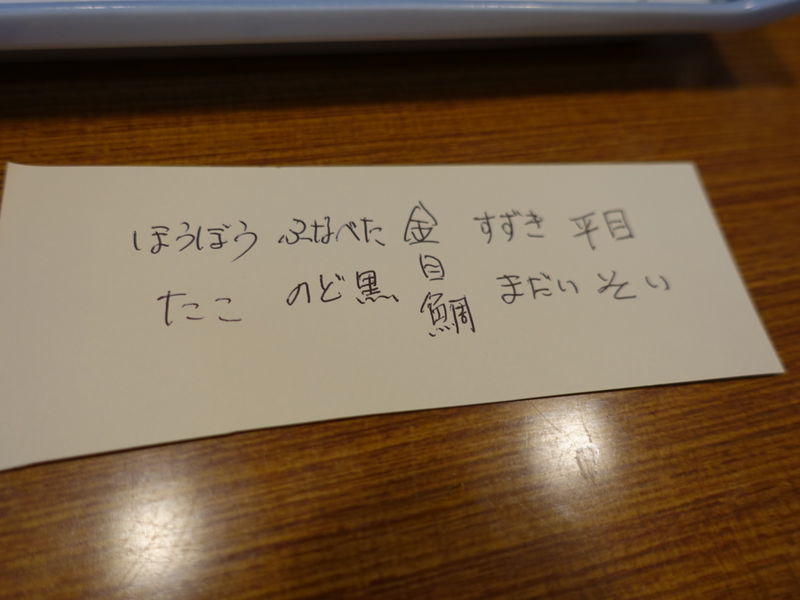 ほうぼう ふなべた 金目鯛 すずき 平目
たこ のど黒 まだい そい